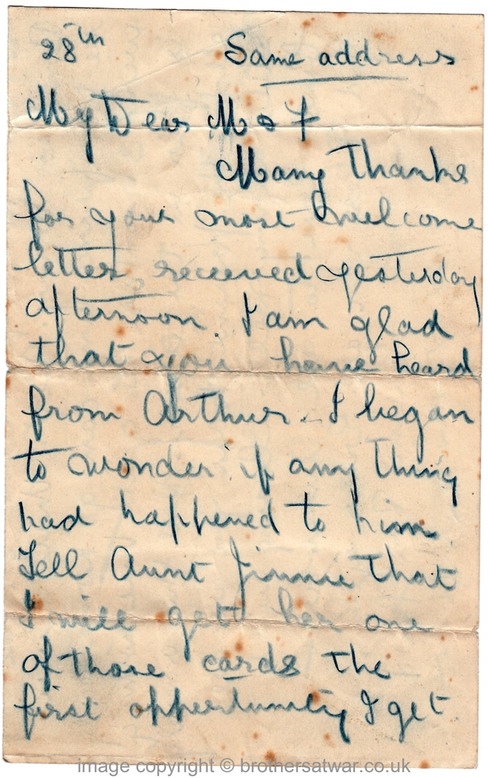 28th Same address
My Dear M & F
Many Thanks
for your most welcome
letter received yesterday
afternoon. I am glad
that you have heard
from Arthur. I began
to wonder if any thing
had happened to him.
Tell Aunt Jinnie that
I will get her one
of those cards the
first opportunity I get
image copyright © brothersatwar.co.uk